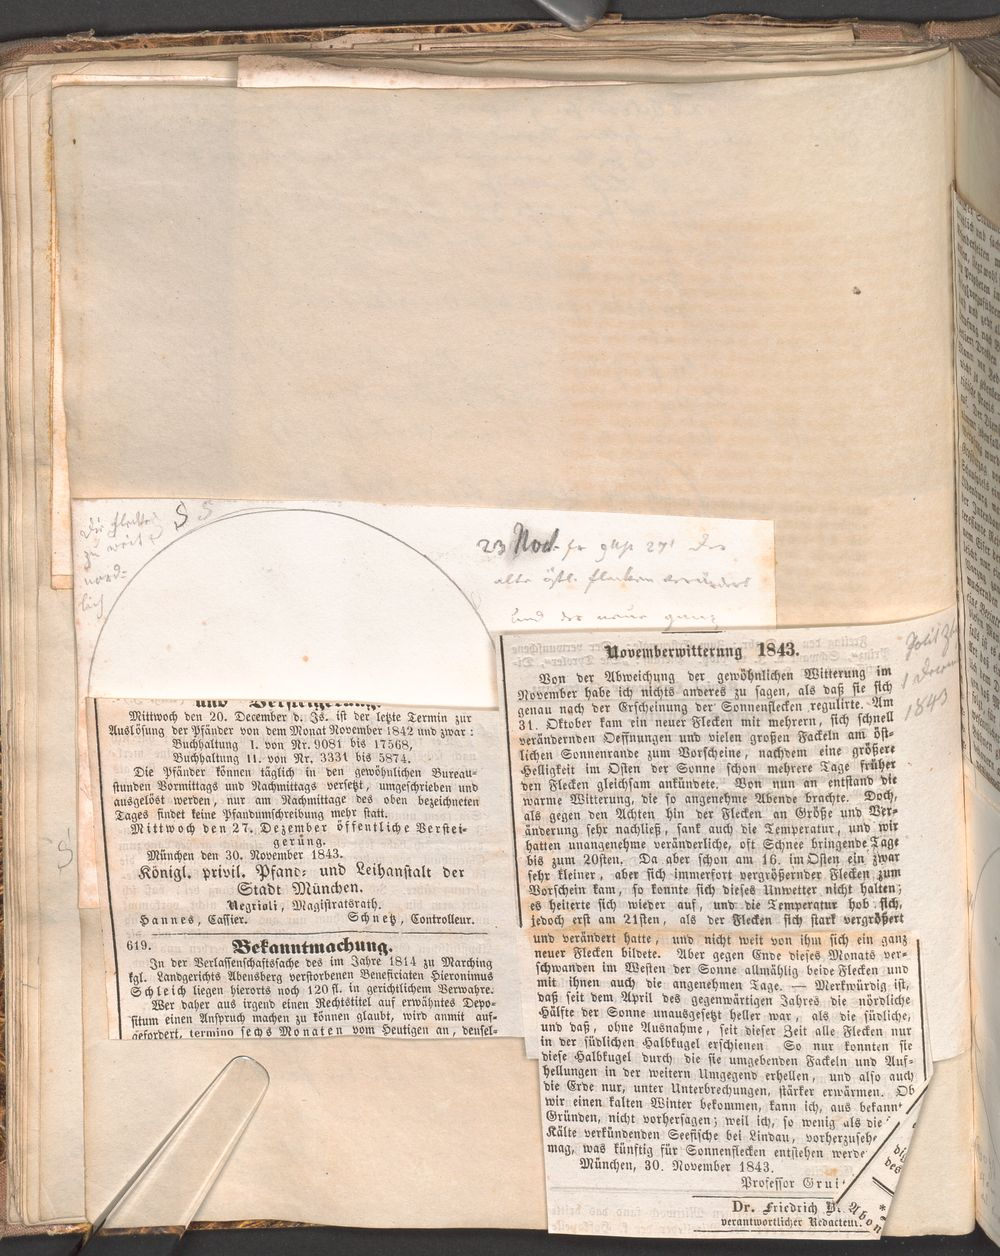 Die Flecken
zu weit
nörd-
lich
S S
23 Nov. fr 9 Uhr 27'
alte östl. Flecken verändert
und der neue ganz
S
und Versteigerung.
Mittwoch den 20. December d. Js. ist der letzte Termin zur
Auslösung der Pfänder von dem Monat November 1842 und zwar:
Buchhaltung I. von Nr. 9081 bis 17568,
Buchhaltung II. von Nr. 3331 bis 5874.
Die Pfänder können täglich in den gewöhnlichen Bureau-
stunden Vormittags und Nachmittags versetzt, umgeschrieben und
ausgelöst werden, nur am Nachmittage des oben bezeichneten
Tages findet keine Pfandumschreibung mehr statt.
Mittwoch den 27. Dezember öffentliche Verstei-
gerung.
München den 30. November 1843.
Königl. privil. Pfand- und Leihanstalt der
Stadt München.
Negrioli, Magistratsrath.
Hannes, Cassier. Schnetz, Controlleur.
619. Bekanntmachung.
In der Verlassenschaftssache des im Jahre 1814 zu Marching
kgl. Landgerichts Abensberg verstorbenen Benefiziaten Hieronimus
Schleich liegen hierorts noch 120 fl. in gerichtlichem Verwahre.
Wer daher aus irgend einen Rechtstitel auf erwähntes Depo-
situm einen Anspruch machen zu können glaubt, wird anmit auf-
gefordert, termino sechs Monaten vom Heutigen an, densel-
Novemberwitterung 1843.
Von der Abweichung der gewöhnlichen Witterung im
November habe ich nichts anderes zu sagen, als daß sie sich
genau nach der Erscheinung der Sonnenflecken regulirte. Am
31. Oktober kam ein neuer Flecken mit mehrern, sich schnell
verändernden Oeffnungen und vielen großen Fackeln am öst-
lichen Sonnenrande zum Vorscheine, nachdem eine größere
Helligkeit im Osten der Sonne schon mehrere Tage früher
den Flecken gleichsam ankündete. Von nun an entstand die
warme Witterung, die so angenehme Abende brachte. Doch,
als gegen den Achten hin der Flecken an Größe und Ver-
änderung sehr nachließ, sank auch die Temperatur, und wir
hatten unangenehme veränderliche, oft Schnee bringende Tage
bis zum 20sten. Da aber schon am 16. im Osten ein zwar
sehr kleiner, aber sich immerfort vergrößernder Flecken zum
Vorschein kam, so konnte sich dieses Unwetter nicht halten;
es heiterte sich wieder auf, und die Temperatur hob sich,
jedoch erst am 21sten, als der Flecken sich stark vergrößert
und verändert hatte, und nicht weit von ihm sich ein ganz
neuer Flecken bildete. Aber gegen Ende dieses Monats ver-
schwanden im Westen der Sonne allmählig beide Flecken und
mit ihnen auch die angenehmen Tage. — Merkwürdig ist,
daß seit dem April des gegenwärtigen Jahres die nördliche
Hälfte der Sonne unausgesetzt heller war, als die südliche,
und daß, ohne Ausnahme, seit dieser Zeit alle Flecken nur
in der südlichen Halbkugel erschienen. So nur konnten sie
diese Halbkugel durch die sie umgebenden Fackeln und Auf-
hellungen in der weitern Umgegend erhellen, und also auch
die Erde nur, unter Unterbrechungen, stärker erwärmen. Ob
wir einen kalten Winter bekommen, kann ich, aus bekannt
Gründen, nicht vorhersagen; weil ich, so wenig als die
Kälte verkündenden Seefische bei Lindau, vorherzuseh
mag, was künftig für Sonnenflecken entstehen werde
München, 30. November 1843.
Professor Grui
Dr. Friedrich B.
verantwortlicher Redacteur.
1843